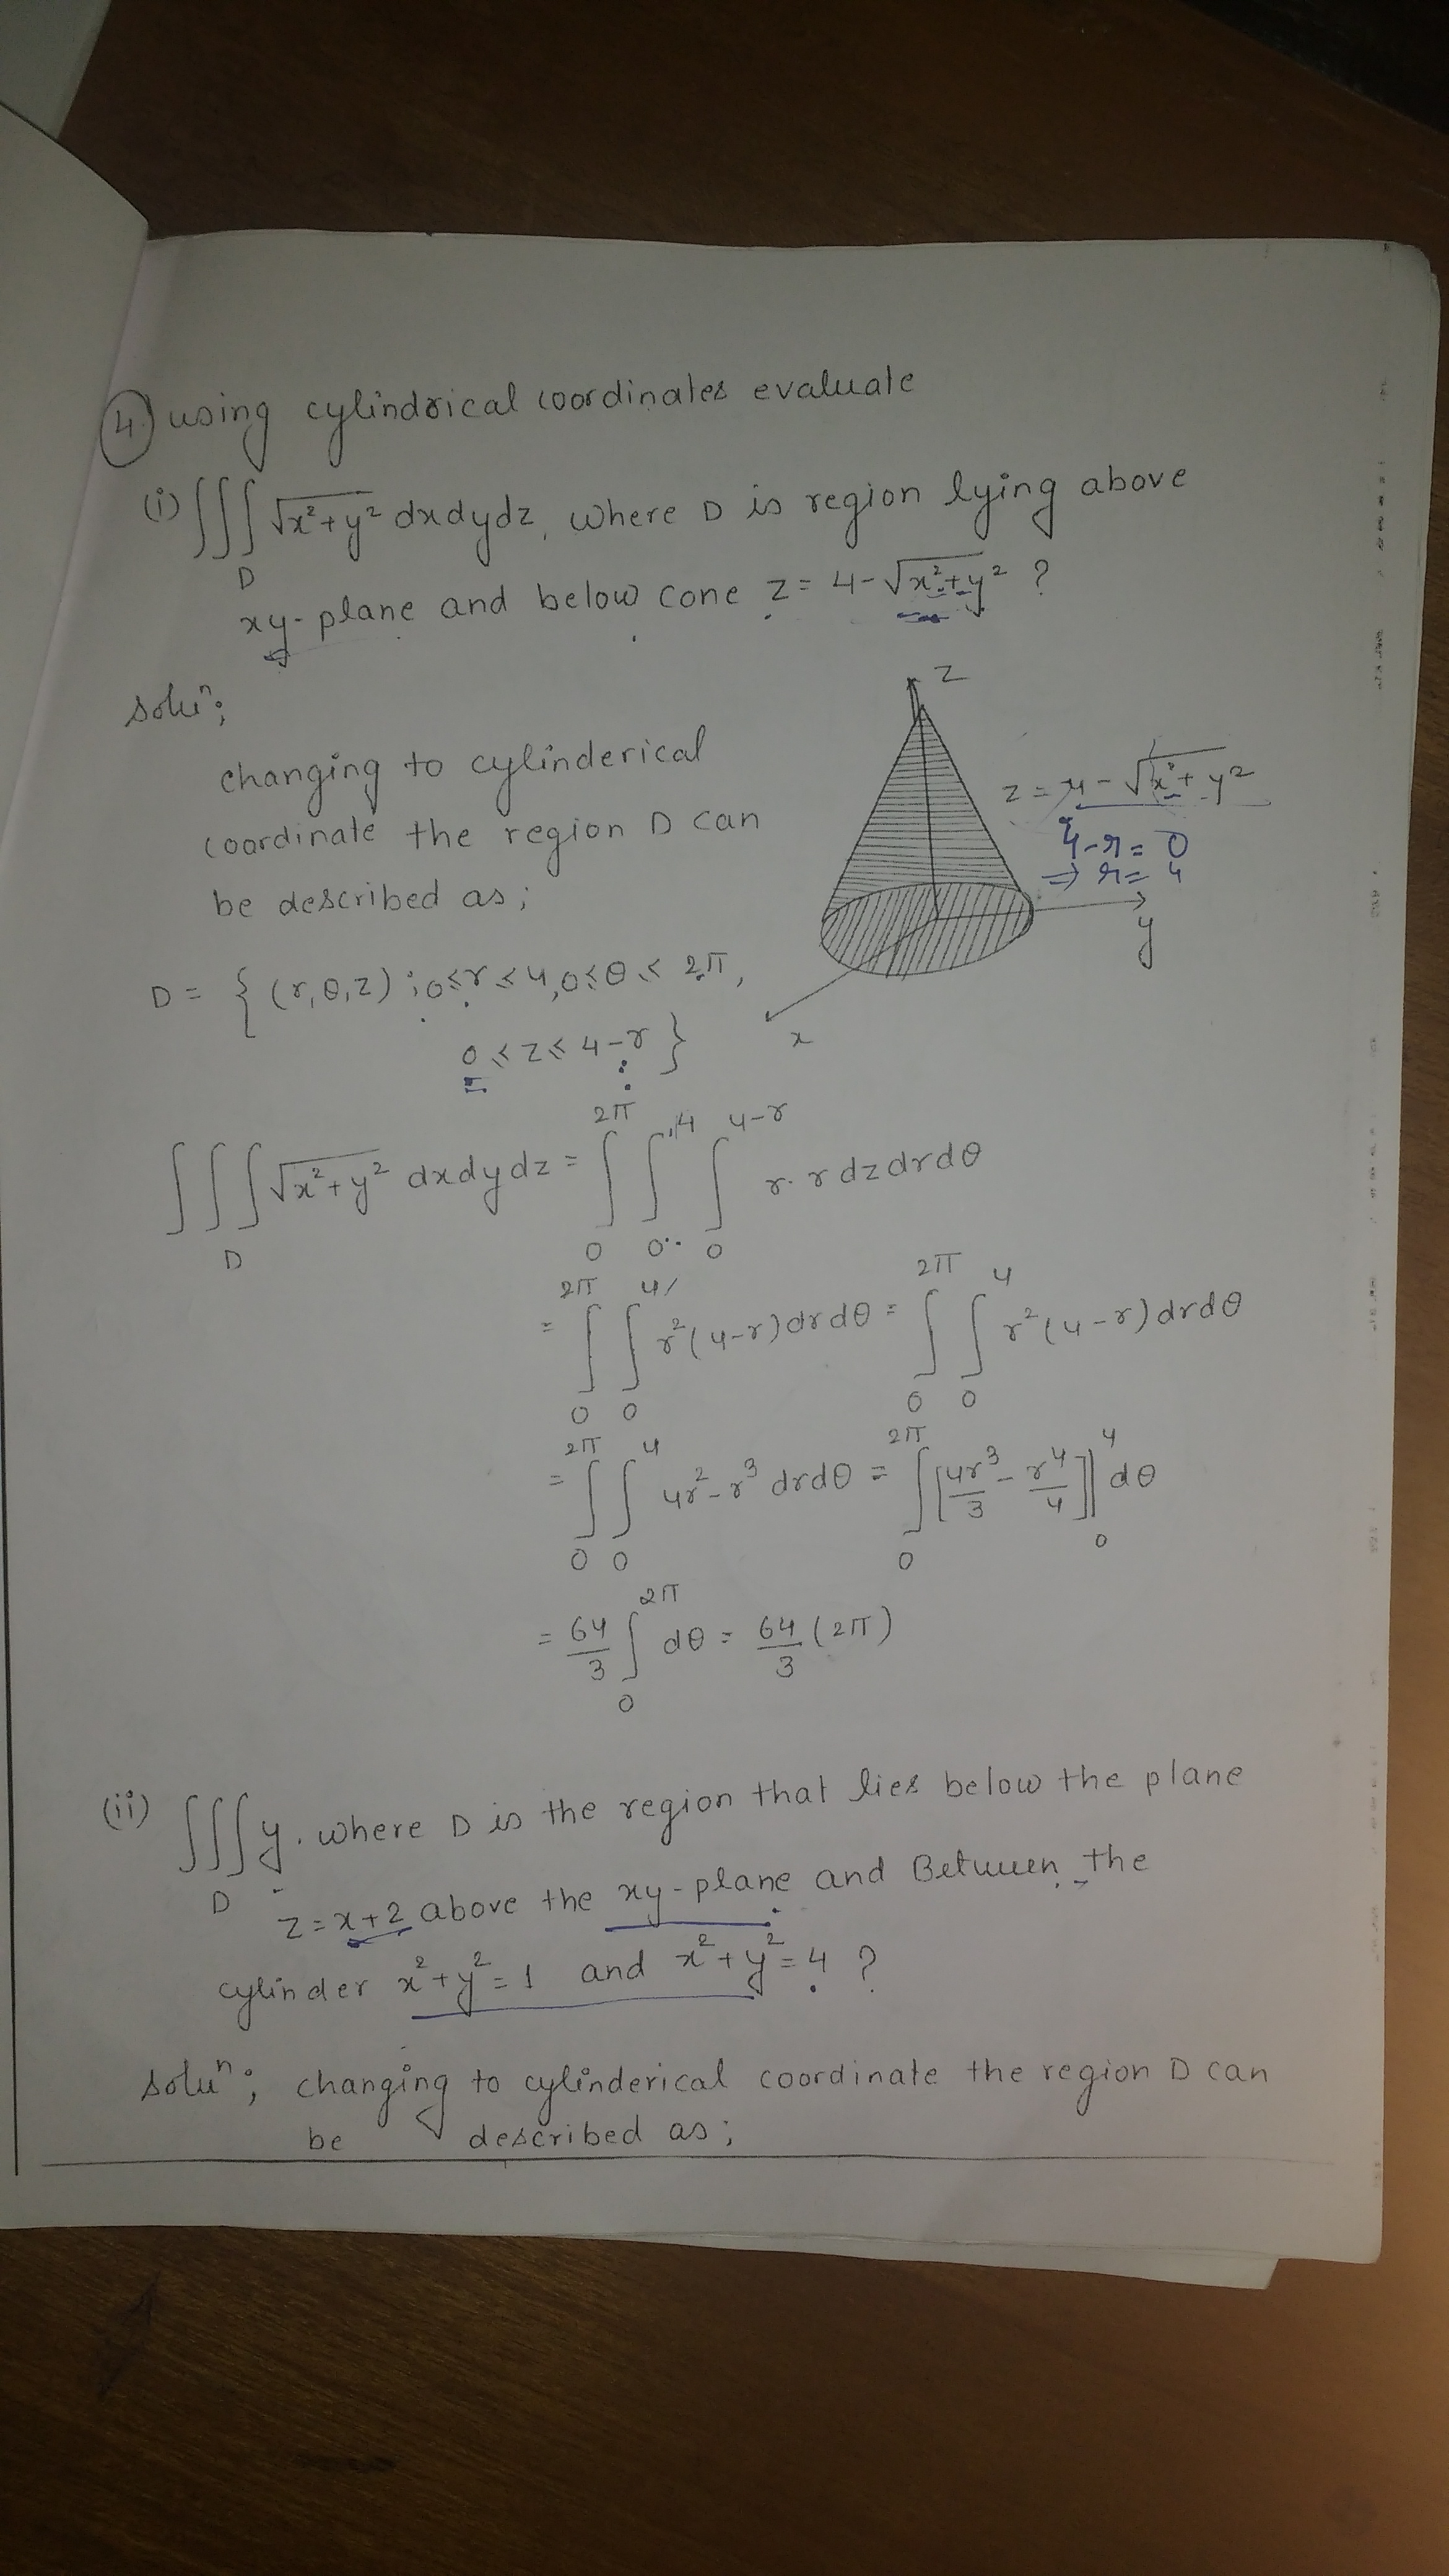 4. using cylindrical coordinates evaluate
(i) ∫∫∫_D √(x²+y²) dxdydz, where D is region lying above
xy-plane and below cone z = 4-√(x²+y²) ?
soluⁿ;
z
z = 4-√(x²+y²)
4-r = 0
⇒ r = 4
y
x
changing to cylinderical
coordinate the region D can
be described as;
D = { (r,θ,z) ; 0≤r≤4, 0≤θ≤ 2π,
0≤z≤ 4-r }
∫∫∫_D √(x²+y²) dxdydz = ∫_0^{2π} ∫_0^4 ∫_0^{4-r} r·r dzdrdθ
= ∫_0^{2π} ∫_0^4 r²(4-r)drdθ = ∫_0^{2π} ∫_0^4 r²(4-r)drdθ
= ∫_0^{2π} ∫_0^4 4r²-r³ drdθ = ∫_0^{2π} [4r³/3 - r⁴/4]|_0^4 dθ
= 64/3 ∫_0^{2π} dθ = 64/3 (2π)
(ii) ∫∫∫_D y. where D is the region that lies below the plane
z = x+2 above the xy-plane and Between the
cylinder x²+y²=1 and x²+y²=4 ?
soluⁿ; changing to cylinderical coordinate the region D can
be described as;